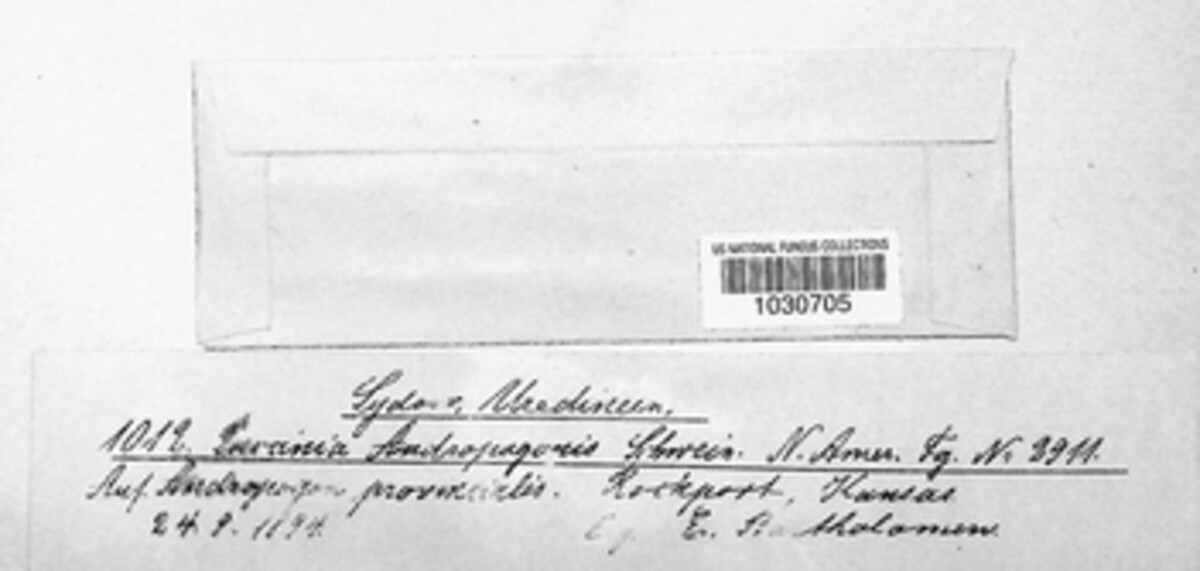 US NATIONAL FUNGUS COLLECTIONS
1030705
Sydow, Uredineen.
1012. Puccinia Andropogonis Schwein. N. Amer. Fg. No 2911.
Auf Andropogon provincialis. Rockport, Kansas
24. 9. 1894. E. Bartholomew